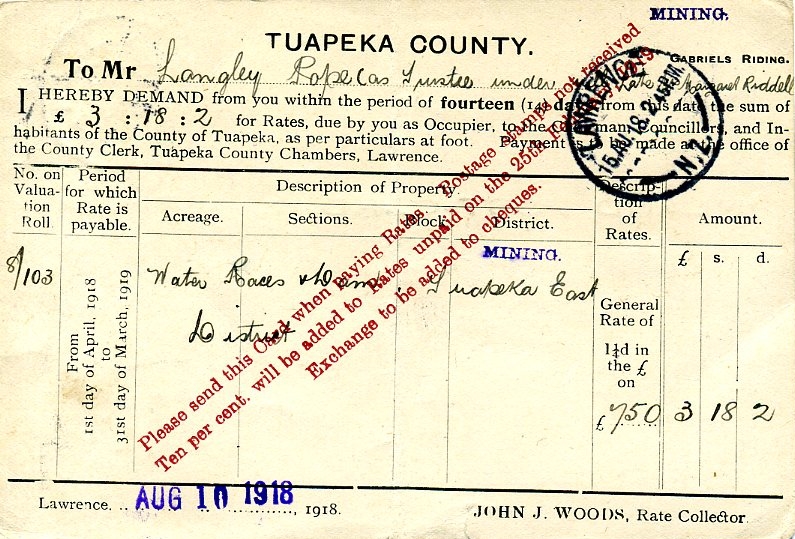 MINING.
TUAPEKA COUNTY.
GABRIELS RIDING.
To Mr Langley Pope (as Trustee under Margaret Riddell
I HEREBY DEMAND from you within the period of fourteen (14) days from this date the sum of
£ 3 : 18 : 2 for Rates, due by you as Occupier, to the Chairman, Councillors, and In-
habitants of the County of Tuapeka, as per particulars at foot. Payment is to be made at the office of
the County Clerk, Tuapeka County Chambers, Lawrence.
LAWRENCE
15 AU 18
N.Z.
No. on Valua- tion Roll.
Period for which Rate is payable.
Description of Property.
Acreage.
Sections.
Block.
District.
Descrip- tion of Rates.
Amount.
£ s. d.
MINING.
8/103
From 1st day of April, 1918 to 31st day of March, 1919
Water Races & Dams. Tuapeka East
District
General
Rate of
1¼d in
the £
on
£ 750 3 18 2
Please send this Card when paying Rates. Postage stamps not received
Ten per cent. will be added to Rates unpaid on the 25th 1919
Exchange to be added to cheques.
Lawrence. AUG 10 1918, 1918.
JOHN J. WOODS, Rate Collector.